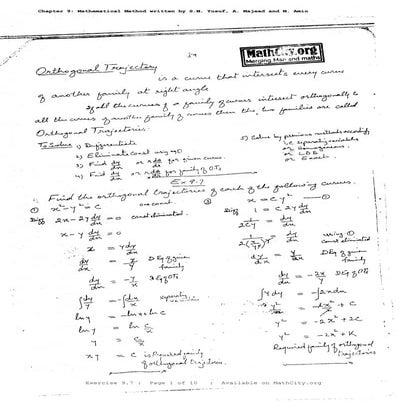 Chapter 9: Mathematical Method written by S.M. Yusuf, A. Majeed and M. Amin
MathCity.org
Merging Man and maths
Orthogonal Trajectory
is a curve that intersects every curve
of another family at right angle
If all the curves of a family of curves intersect orthogonally to
all the curves of another family of curves then the two families are called
Orthogonal Trajectories.
To Solve 1) Differentiate
2) Eliminate const using ①
3) Find dy/dx or for given curve.
4) Find dy/dx or for family of OTs
5) Solve by previous methods accordingly
i.e. separating variables
or Homogeneous
or L.D.E
or Exact.
Ex 9.7
Find the orthogonal trajectories of each of the following curves.
① x² - y² = c
Diff 2x - 2y dy/dx = 0 const eliminated.
x - y dy/dx = 0
x = y dy/dx
dy/dx = x/y DE of given family
dy/dx = -y/x DE of OTs
∫dy/y = -∫dx/x Separating
ln y = -ln x + ln c
ln y = ln c/x
y = c/x
xy = c is Required family of orthogonal trajectories.
② x = cy²
Diff 1 = c 2y dy/dx
1/2cy = dy/dx
using ①
const eliminated
dy/dx = y/2x DE of given family
dy/dx = -2x/y DE of OTs
∫y dy = -∫2x dx
y²/2 = -2x²/2 + C
y² = -2x² + 2C
y² = -2x² + K
Required family of orthogonal trajectories
Exercise 9.7 | Page 1 of 10 | Available on MathCity.org